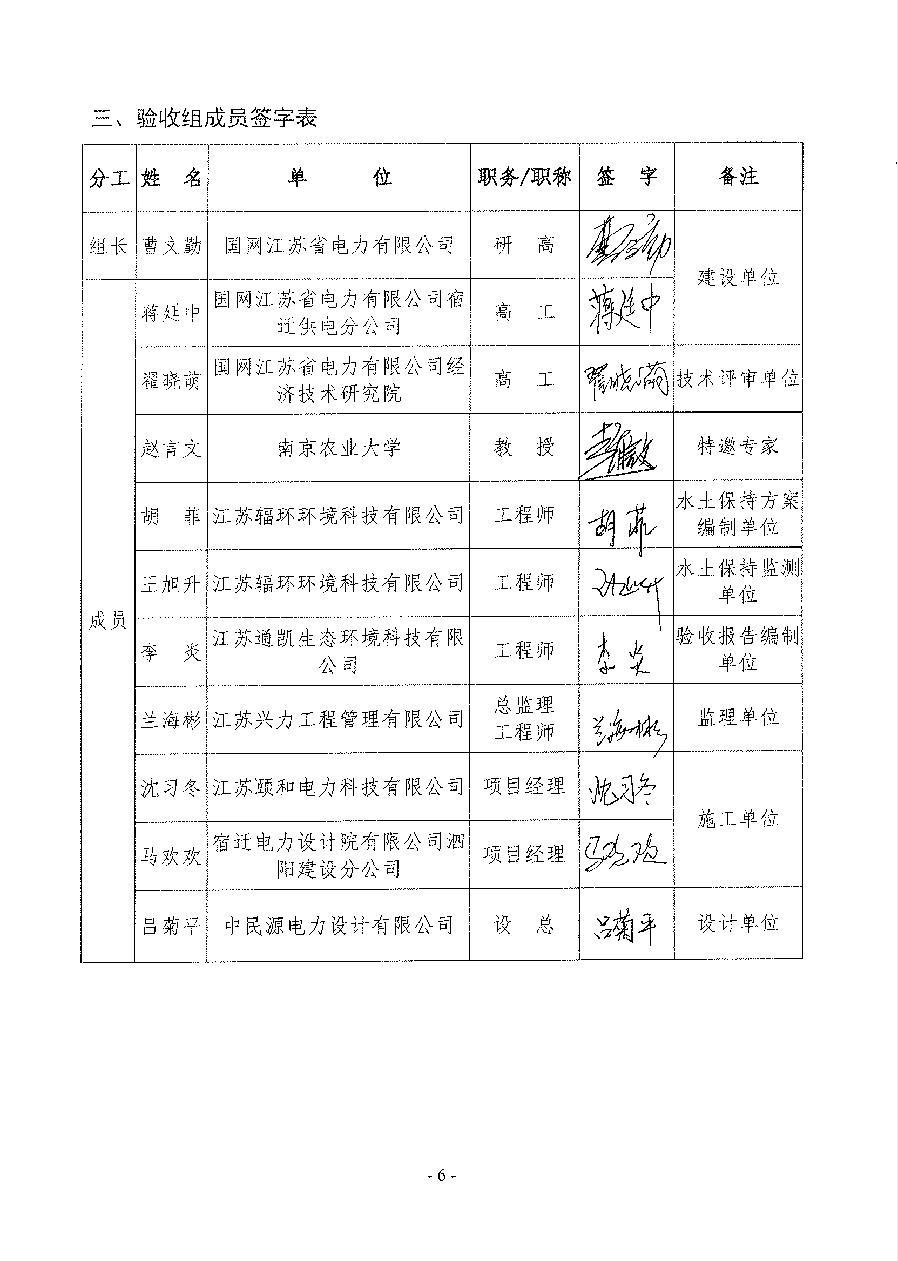 三、验收组成员签字表
分工 姓 名 单 位 职务/职称 签 字 备注
组长 曹文勤 国网江苏省电力有限公司 研 高 建设单位
成员
蒋延中 国网江苏省电力有限公司宿
迁供电分公司 高 工 蒋延中
翟晓萌 国网江苏省电力有限公司经
济技术研究院 高 工 翟晓萌 技术评审单位
赵言文 南京农业大学 教 授 特邀专家
胡 菲 江苏辐环环境科技有限公司 工程师 胡菲 水土保持方案
编制单位
王旭升 江苏辐环环境科技有限公司 工程师 水土保持监测
单位
李 炎 江苏通凯生态环境科技有限
公司 工程师 李炎 验收报告编制
单位
兰海彬 江苏兴力工程管理有限公司 总监理
工程师 兰海彬 监理单位
沈习冬 江苏颐和电力科技有限公司 项目经理 沈习冬 施工单位
马欢欢 宿迁电力设计院有限公司泗
阳建设分公司 项目经理
吕菊平 中民源电力设计有限公司 设 总 吕菊平 设计单位
- 6 -